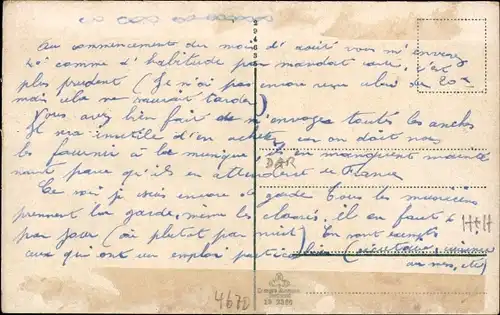 Au commencement du mois d'août vous m'enverrez
comme d'habitude par mandat carte, c'est
plus prudent (Je n'ai pas encore reçu celui de 20
mais cela ne saurait tarder)
Vous avez bien fait de m'envoyer toutes les anches
Il sera inutile d'en acheter, car on doit nous
les fournir à la musique, il en manquent mainte
nant parce qu'ils en attendent de France
Ce soir je suis encore de garde tous les musiciens
prennent la garde, même les classés, il en faut
par jour (ou plutot par nuit) En sont exempts
ceux qui ont un emploi particulier (
DAR
H+H
4672
29463